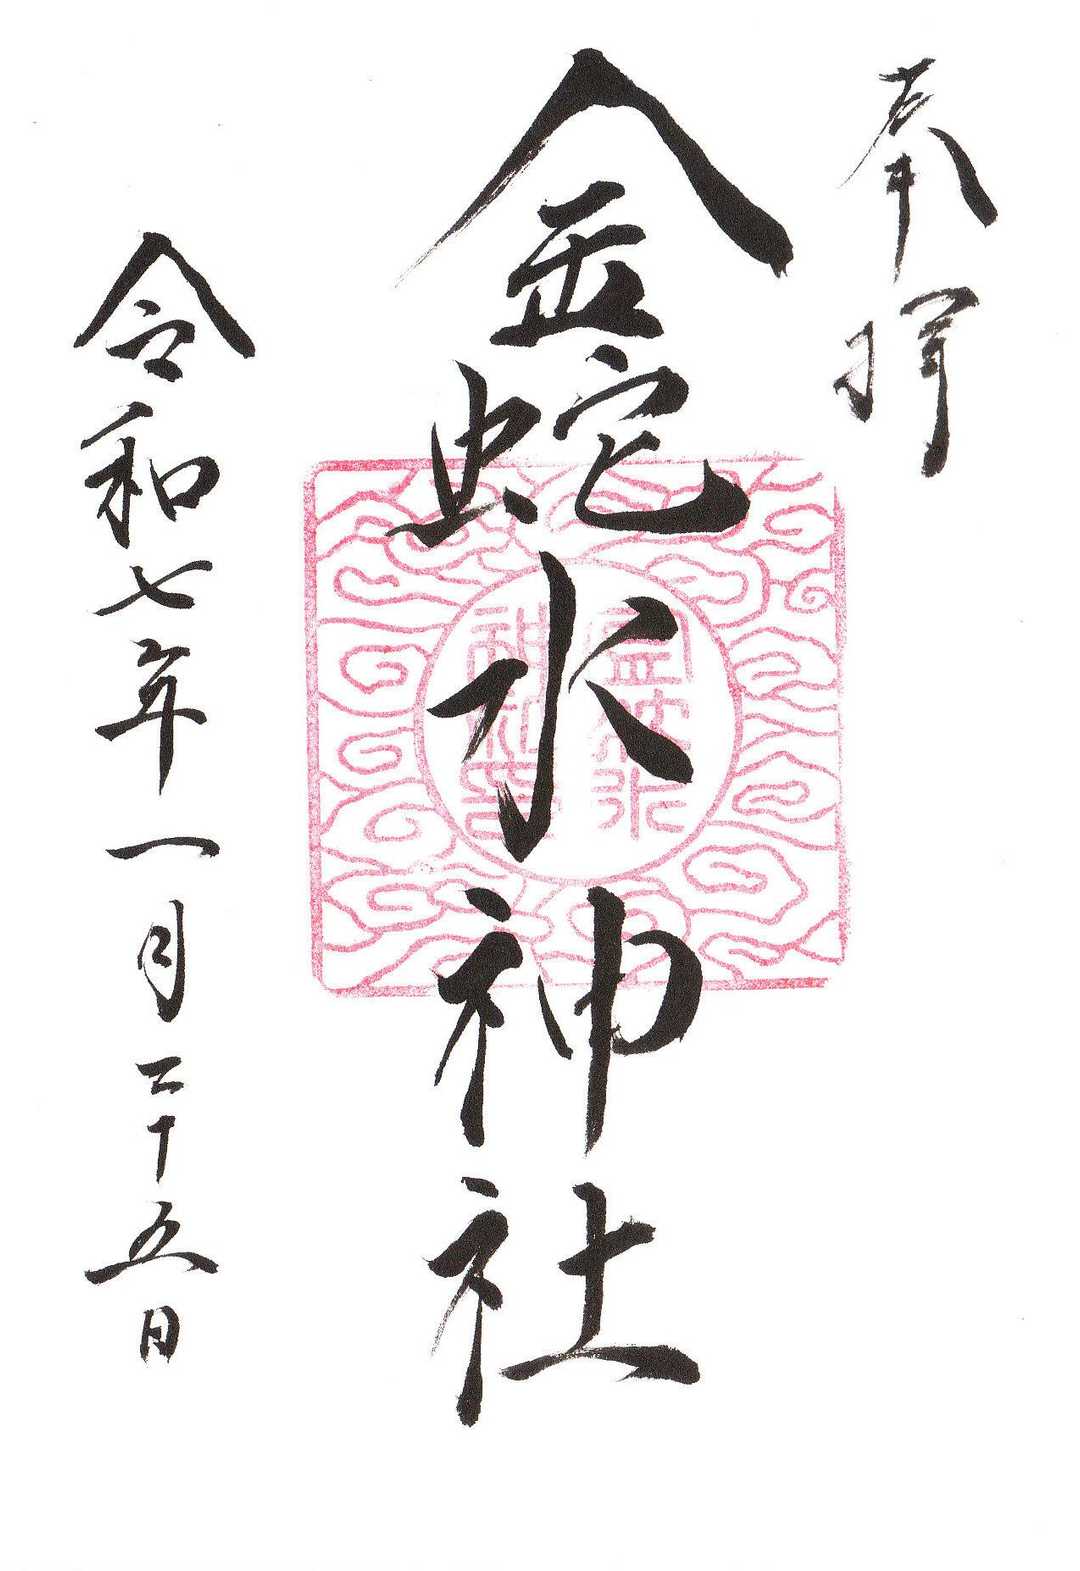 奉拝
金蛇水神社
金蛇水
神社㞮
令和七年一月二十五日